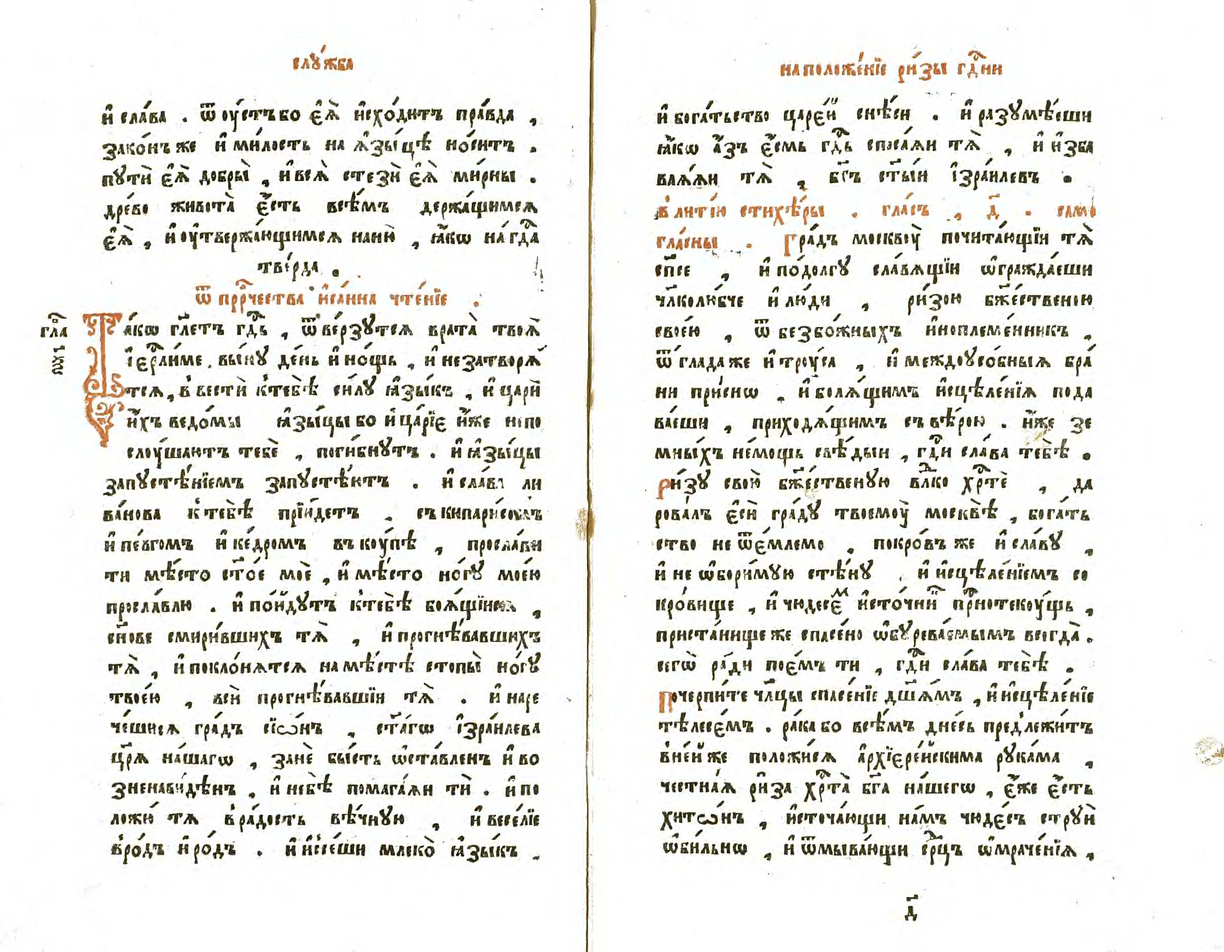 слꙋ́жба
и҆ слава . ѿ ᲂу҆стъ бо є҆ѧ̀ и҆схо́дитъ пра́вда ,
зако́нъ же и҆ ми́лость на ѧ҆зы́цѣ но́ситъ .
пꙋти̑ є҆ѧ̀ добры̀ , и҆ всѧ̀ стезѝ є҆ѧ̀ ми́рны .
дре́во живота̀ є҆́сть всѣ́мъ держа́щимсѧ
є҆ѧ̀ , и҆ ᲂу҆твержа́ющимсѧ на ню̀ , ꙗ҆́кѡ на гдⷭ҇а
тве́рда .
ѿ прⷪ҇ро́чества и҆са́иина чте́нїе .
Та́кѡ гл҃етъ гдⷭ҇ь , ѿве́рзꙋтсѧ врата̀ твоѧ̀
і҆ерⷭ҇ли́ме , вы́нꙋ де́нь и҆ но́щь , и҆ не затворѧ́
тсѧ , ввестѝ к тебѣ̀ си́лꙋ ꙗ҆зы́къ , и҆ царѝ
и҆́хъ ведо́мы ꙗ҆зы́цы бо и҆ ца́рїе и҆́же не по
слꙋ́шаютъ тебѐ , поги́бнꙋтъ . и҆ ꙗ҆зы́цы
запꙋстѣ́нїемъ запꙋстѣ́ютъ . и҆ сла́ва ли
ва́нова к тебѣ̀ прїи́детъ . съ кипари́сомъ
и҆ пе́вгомъ и҆ ке́дромъ вкꙋ́пѣ , просла́ви
ти мѣ́сто ст҃о́е моѐ , и҆ мѣ́сто но́гꙋ моє́ю
просла́влю . и҆ по́йдꙋтъ к тебѣ̀ боѧ́щїисѧ ,
сн҃ове смири́вшихъ тѧ̀ , и҆ прогнѣ́вавшихъ
тѧ̀ , и҆ покло́нѧтсѧ на мѣ́стѣ стопы̀ но́гꙋ
твоє́ю , всѝ прогнѣ́вавшїи тѧ̀ . и҆ наре
че́шисѧ гра́дъ сїѡ́нъ , ст҃а́гѡ і҆зра́илева
цр҃ѧ̀ на́шагѡ , занѐ бы́сть ѡ҆ста́вленъ и҆ во
зненави́дѣнъ , и҆ не бѣ̀ помага́ѧи тѝ . и҆ по
ложю̀ тѧ̀ в ра́дость вѣ́чнꙋю , и҆ весе́лїе
в ро́дъ и҆ ро́дъ . и҆ и҆ссе́ши млеко̀ ꙗ҆зы́къ .
гла
на положе́нїе ри́зы гдⷭ҇ни
и҆ бога́тьство царе́й снѣ́си . и҆ разꙋмѣ́еши
ꙗ҆́кѡ а҆́зъ є҆́смь гдⷭ҇ь спаса́ѧи тѧ̀ , и҆ и҆зба
влѧ́ѧи тѧ̀ , бг҃ъ ст҃ы́и і҆зра́илевъ .
в литїю̀ стихѣ́ры . гла́съ , д҃ . само
гла́сны . Гра́дъ москвꙋ̀ почита́ющїи тѧ̀
сп҃се , и҆ по до́лгꙋ сла́вѧщїи ѡ҆гражда́еши
чл҃колю́бче и҆ лю́ди , ри́зою бж҃е́ственою
свое́ю , ѿ безбо́жныхъ и҆ноплеме́нникъ ,
ѿ гла́да же и҆ трꙋ́са , и҆ междоусо́бныѧ бра́
ни при́снѡ , и҆ болѧ́щимъ и҆сцѣле́нїѧ пода
ва́еши , приходѧ́щимъ съ вѣ́рою . и҆́же зе
мны́хъ не́мощь свѣ́дыи , гдⷭ҇и сла́ва тебѣ̀ .
Ри́зꙋ свою̀ бж҃е́ственꙋю влⷣко хрⷭ҇тѐ , да
рова́лъ є҆сѝ гра́дꙋ твоемꙋ̀ москвѣ̀ , бога́ть
ство не ѿе́млемо , покро́въ же и҆ сла́вꙋ ,
и҆ не ѡ҆бори́мꙋю стѣ́нꙋ , и҆ и҆сцѣле́нїемъ со
кро́вище , и҆ чюдесе́мъ и҆сто́чникъ при́снотекꙋщь ,
приста́нище же спасе́но ѡ҆бꙋрева́емымъ всегда̀ .
сегѡ̀ ра́ди пое́мъ ти , гдⷭ҇и сла́ва тебѣ̀ .
Почерпи́те чл҃цы спасе́нїе дш҃а́мъ , и҆ и҆сцѣле́нїе
тѣлесе́мъ . ра́ка бо всѣ́мъ дне́сь предлежи́тъ
в не́й же положи́сѧ а҆рхїере́йскима рꙋка́ма ,
честна́ѧ ри́за хрⷭ҇та̀ бг҃а на́шегѡ , є҆́же є҆́сть
хитѡ́нъ , и҆сточа́ющи на́мъ чюде́съ стрꙋѝ
ѡ҆би́льнѡ , и҆ ѿмыва́ющи се́рⷣцъ ѡ҆мраче́нїѧ ,
д҃